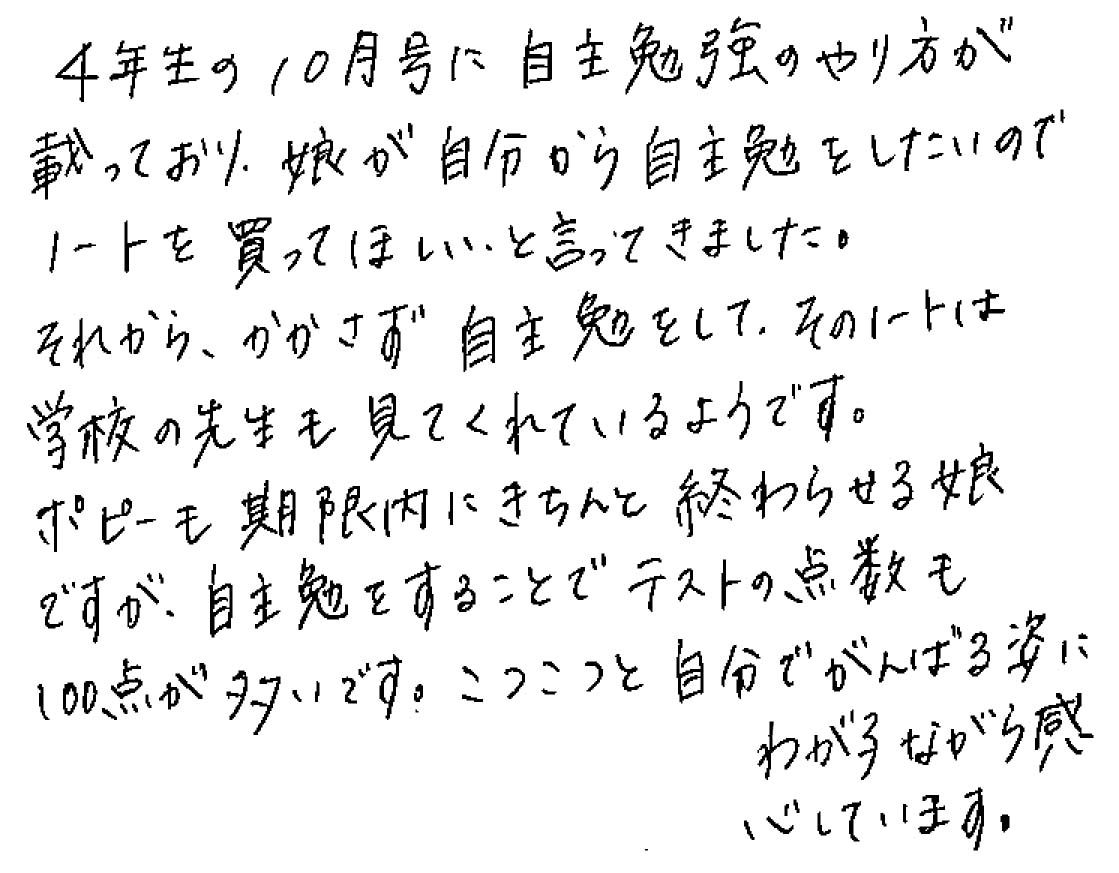 4年生の10月号に自主勉強のやり方が
載っており、娘が自分から自主勉をしたいので
ノートを買ってほしい、と言ってきました。
それから、かかさず自主勉をして、そのノートは
学校の先生も見てくれているようです。
ポピーも期限内にきちんと終わらせる娘
ですが、自主勉をすることでテストの点数も
100点が多いです。こつこつと自分でがんばる姿に
わが子ながら感
心しています。